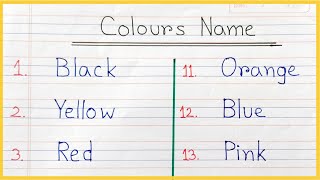 Colours Name
1. Black
2. Yellow
3. Red
11. Orange
12. Blue
13. Pink